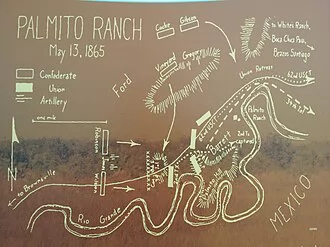 PALMITO RANCH
May 13, 1865
Confederate
Union
Artillery
one mile
Carter
Gibson
Vincent
Gregory
Ford
to White's Ranch,
Boca Chica Pass,
Brazos Santiago
Union Retreat
62nd USCT
34th Ind
Palmito
Ranch
Barrett
Robinson
Wilson
to Brownsville
Rio Grande
MEXICO